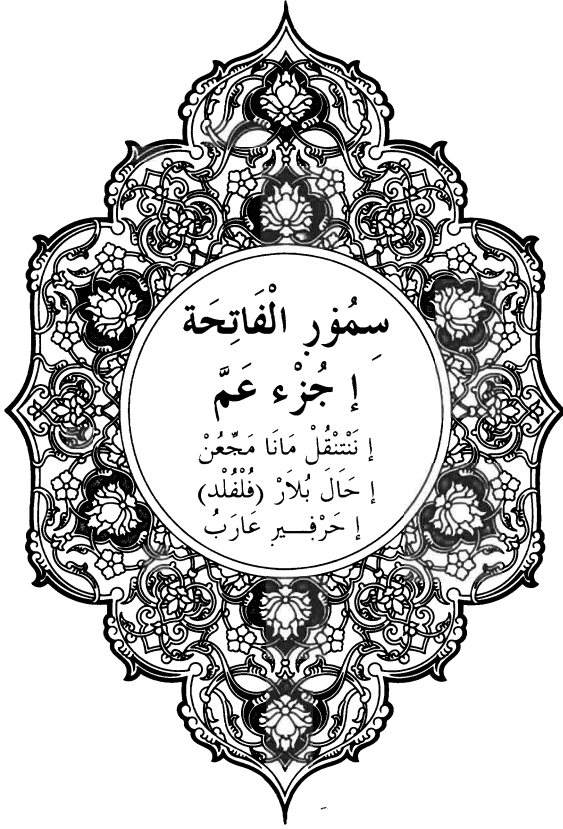 سِمُوْرِ الْفَاتِحَة
إ جُزْء عَمَّ
إ نَنْتنْقُلْ مَانَا مَجِّعُنْ
إ حَالَ بُلَارْ (فُلْفُلْد)
إ حَرْفِيرِ عَارَبُ